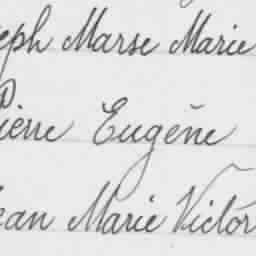 eph Marse Marie
Pierre Eugène
ean Marie Victor